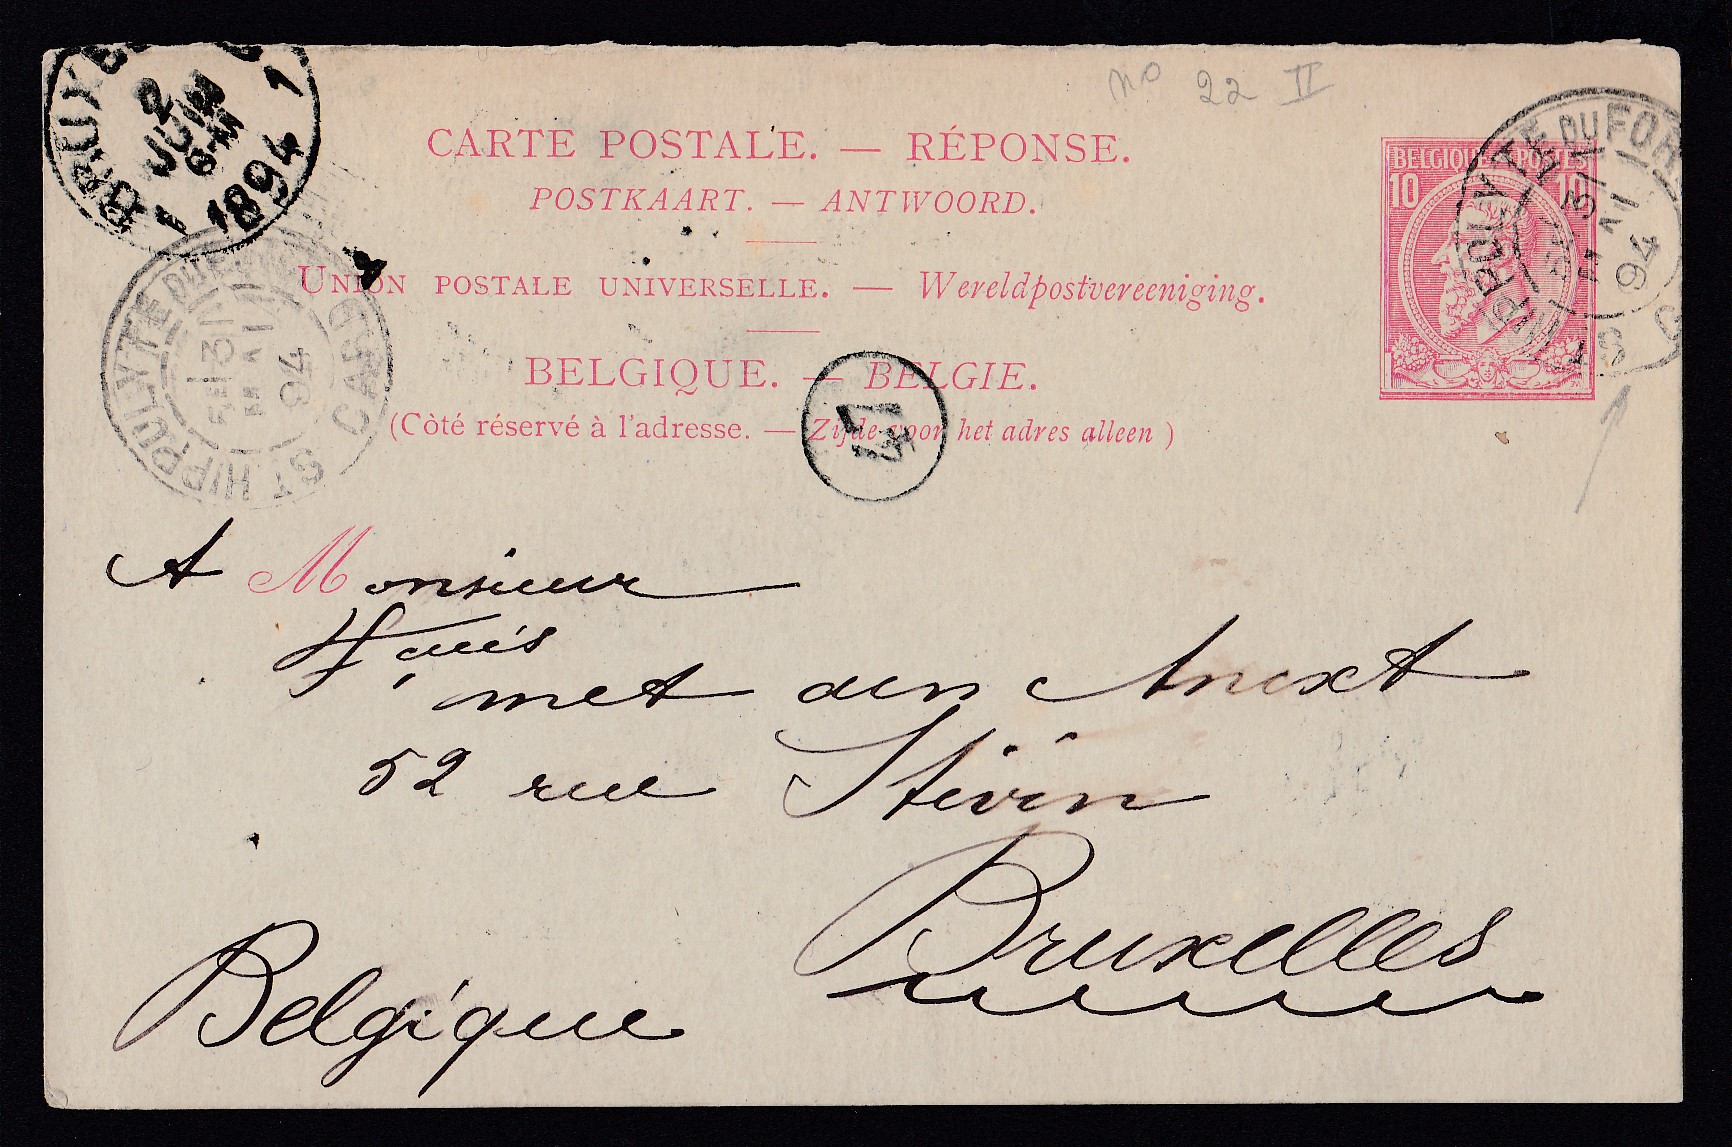 No 22 II
CARTE POSTALE. — RÉPONSE.
POSTKAART. — ANTWOORD.
UNION POSTALE UNIVERSELLE. — Wereldpostvereeniging.
BELGIQUE. — BELGIE.
(Côté réservé à l'adresse. — Zijde voor het adres alleen)
BELGIQUE POSTES
10 10
BRUX 1
2
JUIN
1894
ST HIPPOLYTE DU FORT GARD
31
MAI
94
HIPPOLYTE DU FORT
31
MAI
94
A Monsieur
met den Anxt
52 rue Stévin
Bruxelles
Belgique